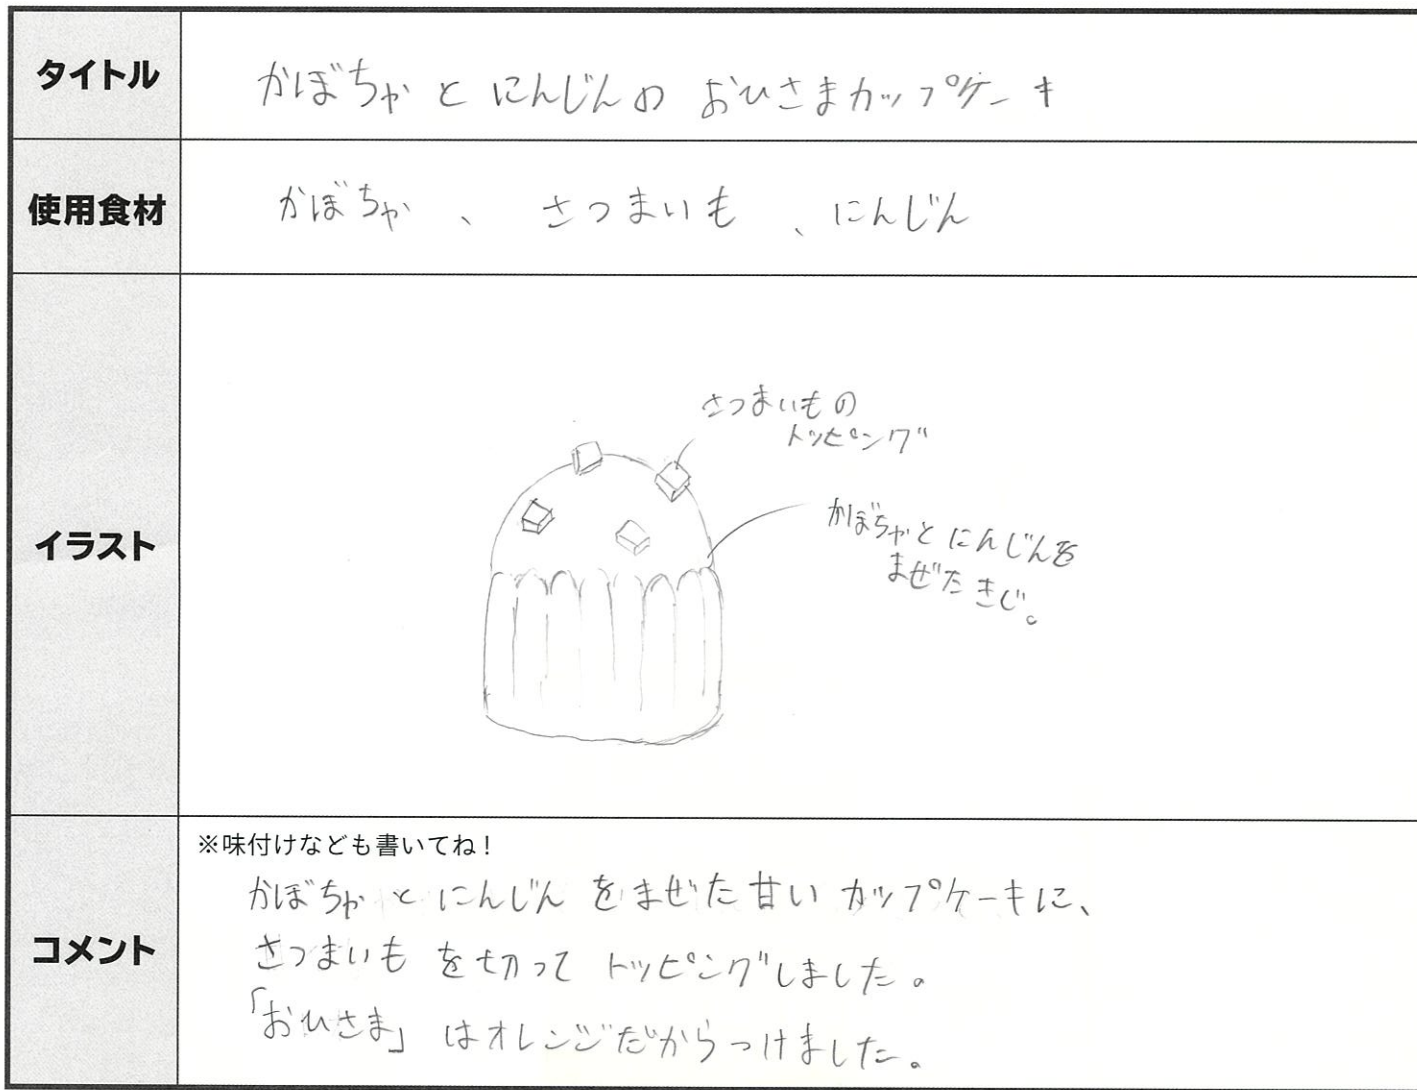 タイトル
かぼちゃとにんじんのおひさまカップケーキ
使用食材
かぼちゃ、さつまいも、にんじん
イラスト
さつまいもの
トッピング
かぼちゃとにんじんを
まぜたきじ。
コメント
※味付けなども書いてね!
かぼちゃとにんじんをまぜた甘いカップケーキに、
さつまいもを切ってトッピングしました。
「おひさま」はオレンジだからつけました。